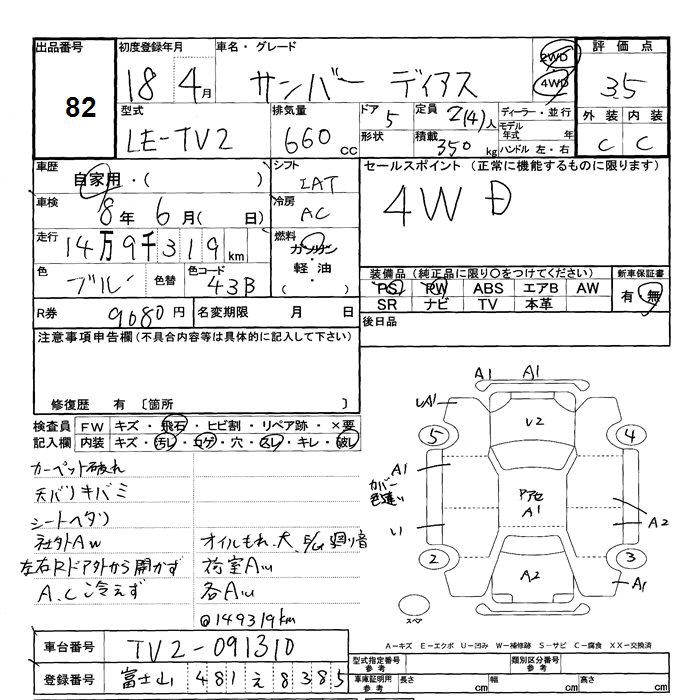 出品番号
82
初度登録年月
18 4月
車名・グレード
サンバー ディアス
2WD
4WD
評価点
35
型式
LE-TV2
排気量
660cc
ドア
5
形状
定員
2(4)人
積載
350kg
ディーラー・並行
モデル年式 年
ハンドル 左・右
外装 内装
C C
車歴
自家用・( )
シフト
IAT
車検
8年 6月( 日)
冷房
AC
走行
14万9千319km
燃料
ガソリン
・
軽・油
( )
色
ブルー
色替
色コード
43B
セールスポイント (正常に機能するものに限ります)
4WD
装備品(純正品に限り○をつけてください)
PS PW ABS エアB AW
SR ナビ TV 本革
新車保証書
有・無
R券
9680円
名変期限 月 日
後日品
注意事項申告欄(不具合内容等は具体的に記入して下さい)
修復歴 有 〔箇所 〕
検査員記入欄
FW キズ・飛石・ヒビ割・リペア跡・×要
内装 キズ・汚レ・コゲ・穴・スレ・キレ・破レ
カーペット破れ
天バリキバミ
シートヘタリ
社外AW
左右Rドア外から開かず
A.C冷えず
オイルもれ大 E/G廻り音
荷室AW
各AW
@149319km
A1 A1
A1
V2
5 4
A1
カバー色違い
アアセ
A1
A2
2 3
A2
A1
スペア
A-キズ E-エクボ U-凹み W-補修跡 S-サビ C-腐食 XX-交換済
車台番号
TV2-091310
登録番号
富士山 481 え 8385
型式指定番号
参考
類別区分番号
参考
車庫証明用
参考
長さ cm
幅 cm
高さ cm